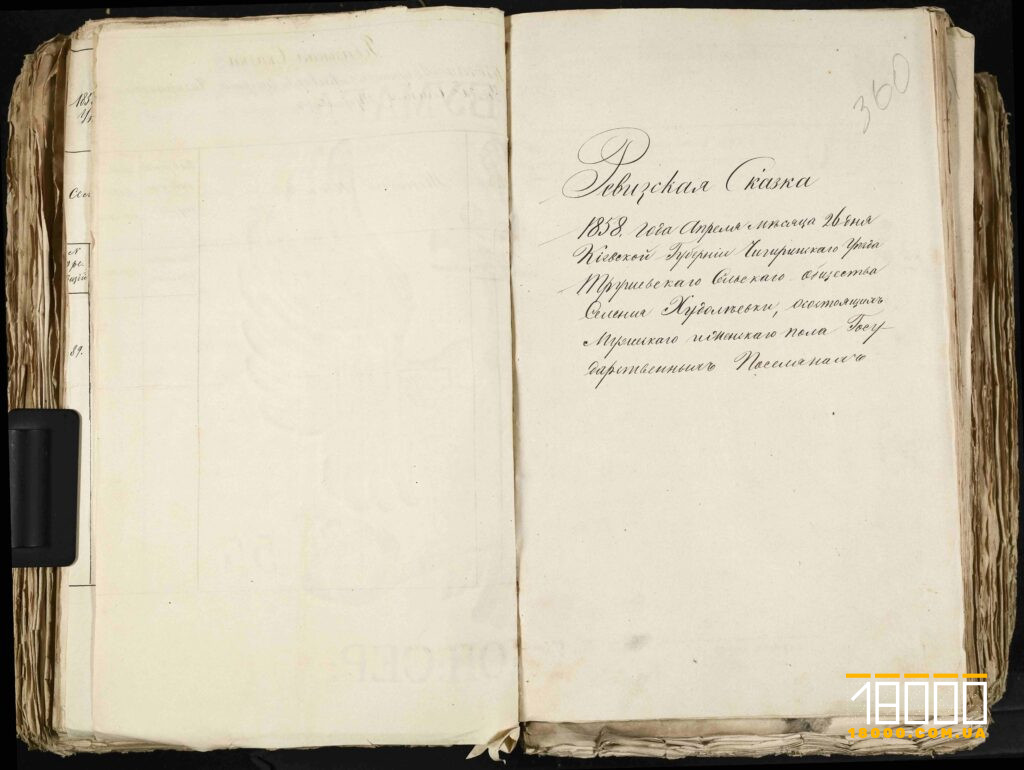 185
Сел
N
89.
360
Ревизская Сказка
1858. года Апреля мѣсяца 26 дня
Кіевской Губерніи Чигиринскаго Уѣзда
Трушевскаго Сельскаго общества
Селенія Худолѣевки, о состоящихъ
Мужескаго и Женскаго пола Госу
дарственныхъ Поселянахъ
18000
18000.COM.UA